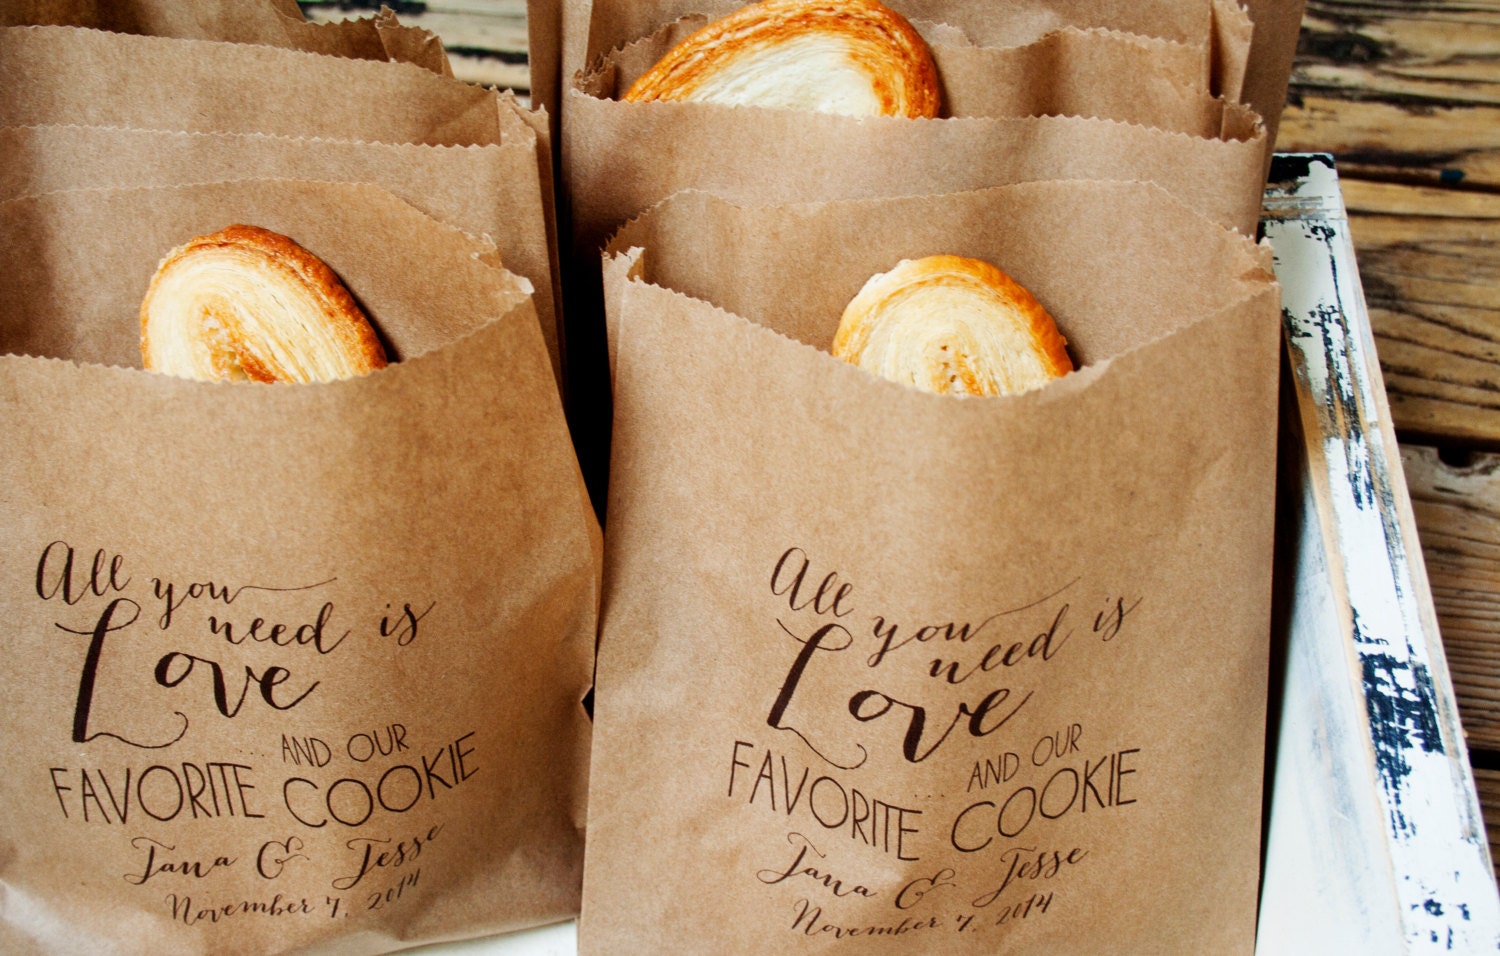 All you
need is
Love
... AND OUR
FAVORITE COOKIE
Jana & Jesse
November 7, 2014
All you
need is
Love
... AND OUR
FAVORITE COOKIE
Jana & Jesse
November 7, 2014